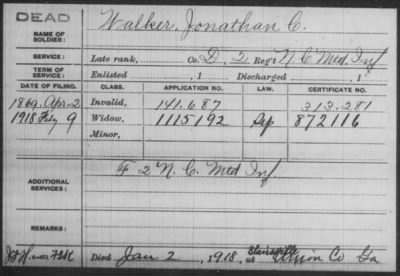 DEAD
NAME OF SOLDIER: Walker, Jonathan C.
SERVICE: Late rank, Co. D, 2 Reg't N.C. Mtd Inf
TERM OF SERVICE: Enlisted , 1 Discharged , 1
DATE OF FILING. CLASS. APPLICATION NO. LAW. CERTIFICATE NO.
1869, Apr. 2 Invalid, 141.687 313.281
1918 Feby 9 Widow, 1115192 872116
Minor,
F 2 N.C. Mtd Inf
ADDITIONAL SERVICES:
REMARKS:
Died Jan 2, 1918, at Blairsville Union Co Ga